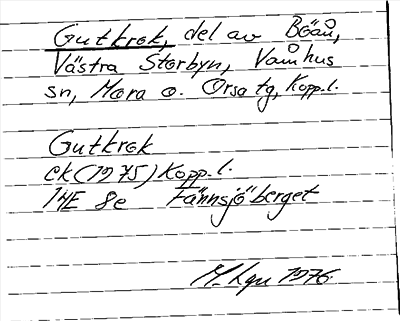 Gutkrok, del av Böån,
Västra Storbyn, Våmhus
sn, Mora o. Orsa tg, Kopp.l.
Gutkrok
ek (1975) Kopp.l.
14E 8e Fännsjöberget
1976